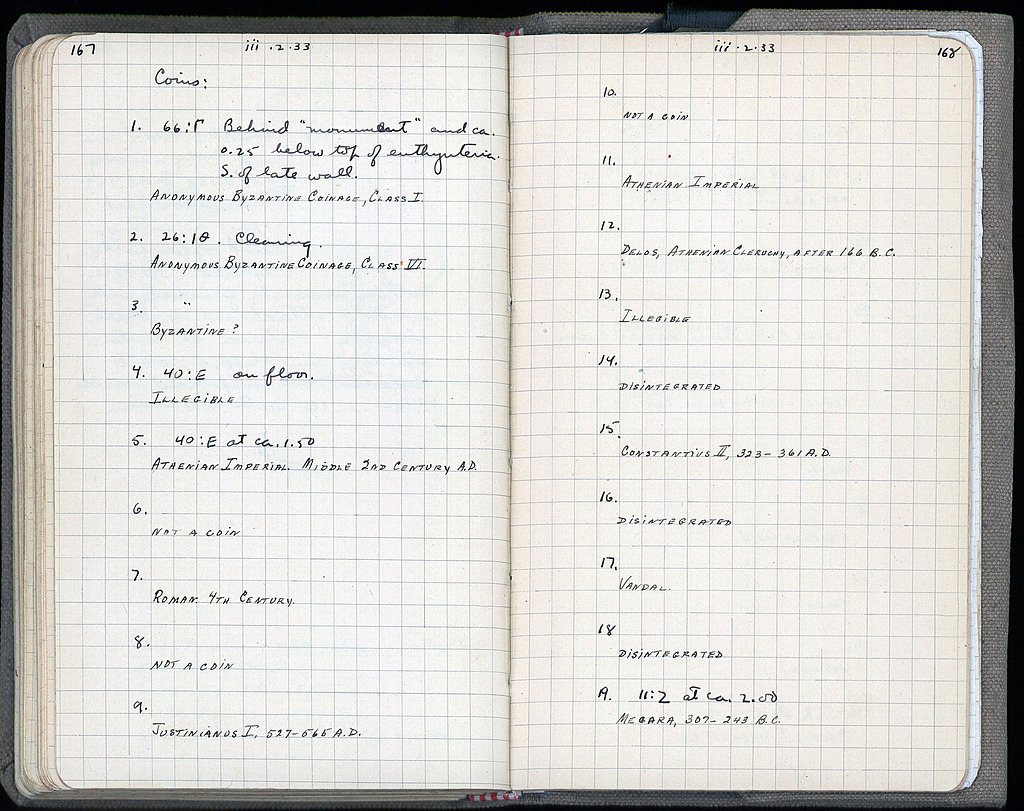 167
iii · 2 · 33
Coins:
1. 66:Γ Behind "monument" and ca.
0.25 below top of euthynteria.
S. of late wall.
Anonymous Byzantine Coinage, Class I.
2. 26:ΙΘ. Cleaning.
Anonymous Byzantine Coinage, Class VI.
3. "
Byzantine?
4. 40:E on floor.
Illegible
5. 40:E at ca. 1.50
Athenian Imperial. Middle 2nd Century A.D.
6.
Not a coin
7.
Roman. 4th Century.
8.
Not a coin
9.
Justinianus I, 527-565 A.D.
iii · 2 · 33
168
10.
Not a coin
11.
Athenian Imperial
12.
Delos, Athenian Cleruchy, after 166 B.C.
13.
Illegible
14.
Disintegrated
15.
Constantius II, 323-361 A.D.
16.
Disintegrated
17.
Vandal.
18
Disintegrated
A. 11:Z at ca. 2.00
Megara, 307-243 B.C.